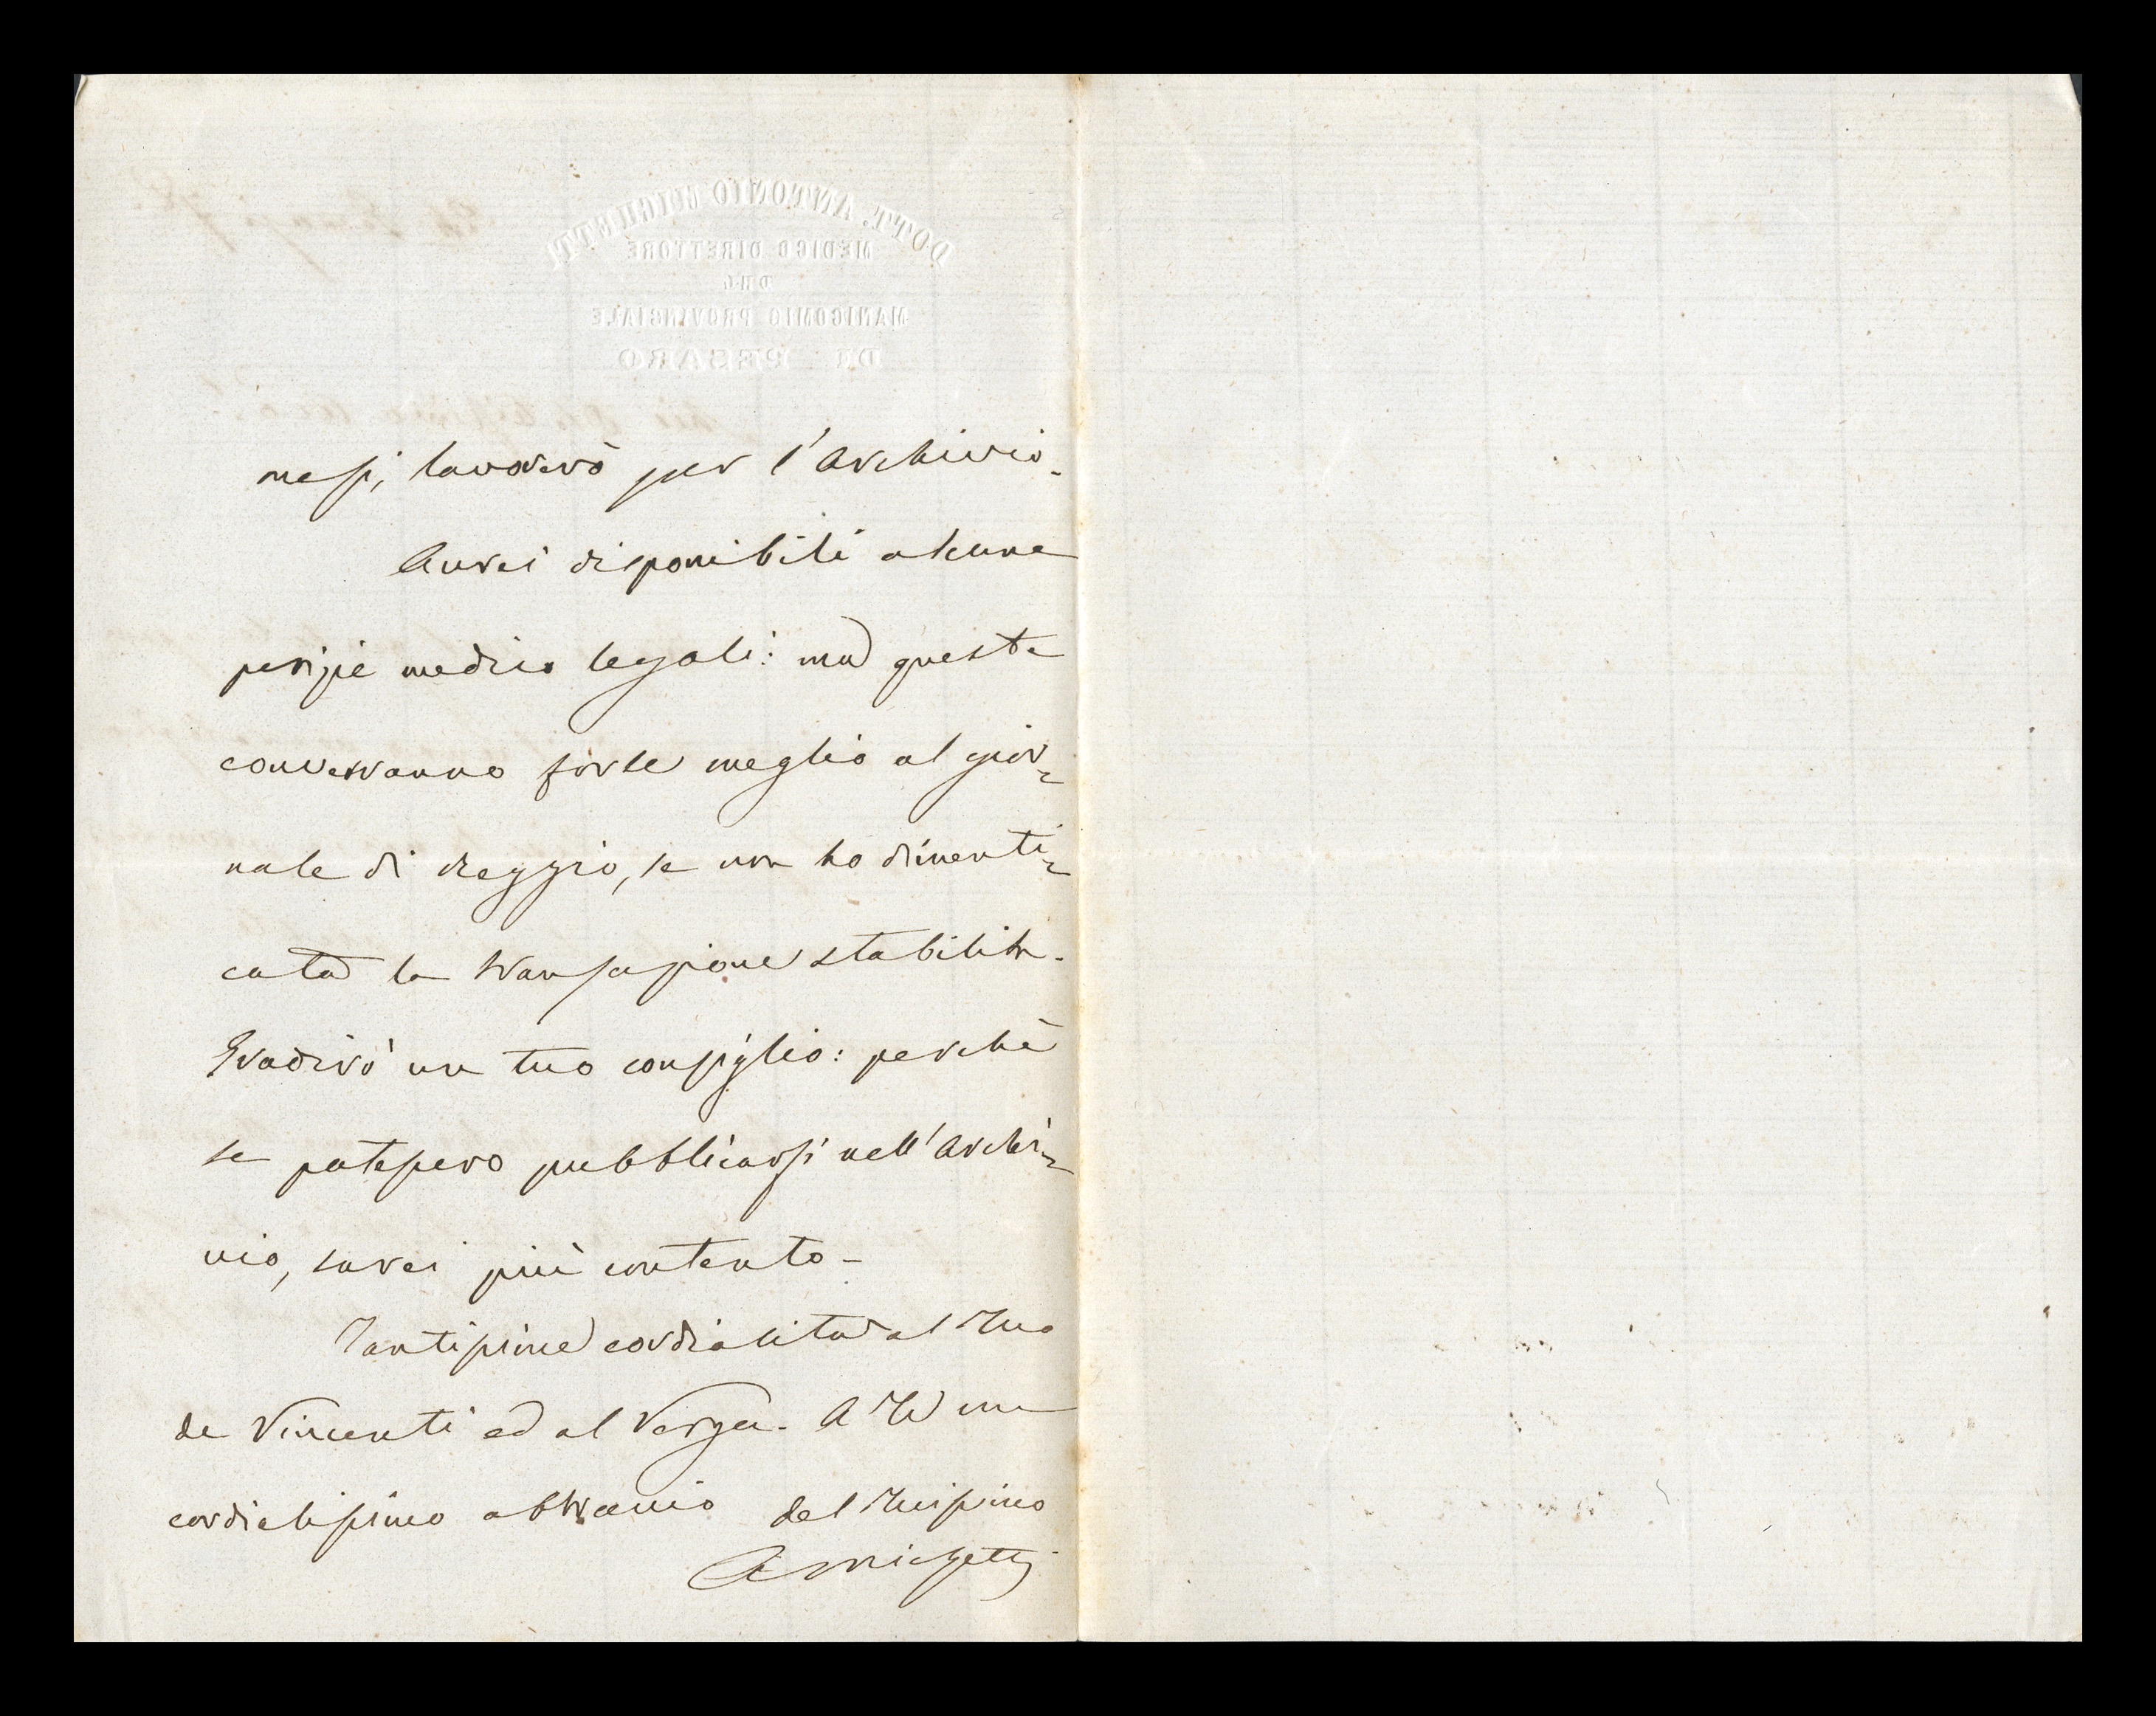 DOTT. ANTONIO MICHETTI
MEDICO DIRETTORE
DEL
MANICOMIO PROVINCIALE
DI PESARO
mesi, lavorerò per l'Archivio.
Avrei disponibili alcune
perizie medico legali: ma queste
converranno forse meglio al gior=
nale di Reggio, se non ho dimenti=
cata la transazione stabilita.
Gradirò un tuo consiglio: perchè
se potessero pubblicarsi nell'Archi=
vio, sarei più contento –
Tantissime cordialità al Tuo
de Vincenti ed al Verga. A Te un
cordialissimo abbraccio del Tuissimo
A Michetti